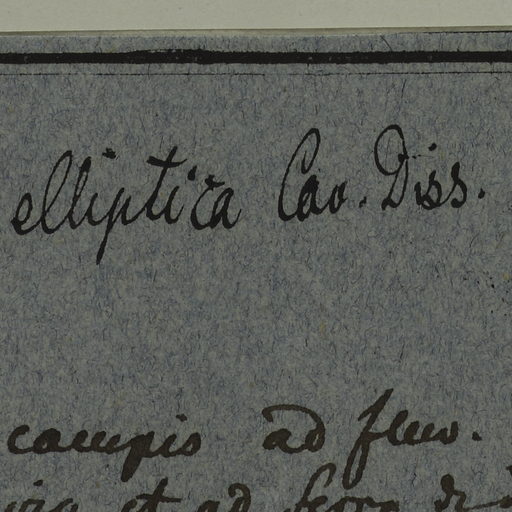 elliptica Cav. Diss.
campis ad fluv.
et ad